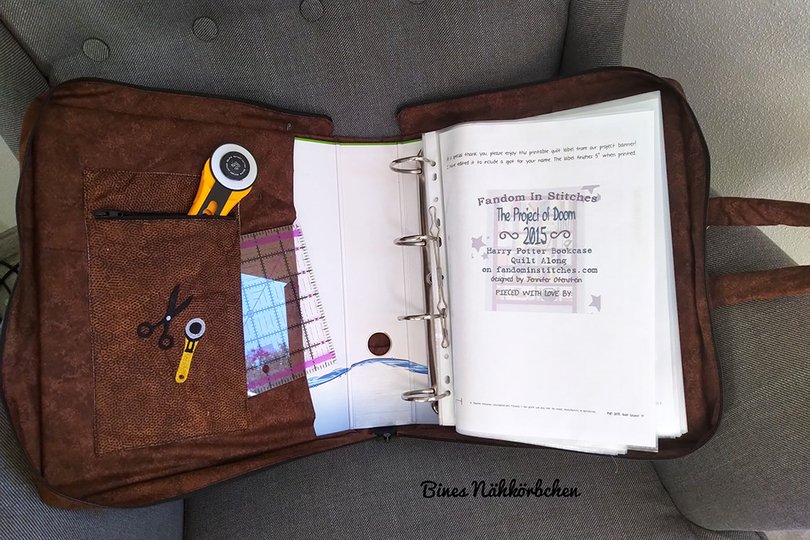 As a special thank you, please enjoy this printable quilt label from our project banner!
I have edited it to include a spot for your name. The label finishes 5" when printed.
Fandom In Stitches
The Project of Doom
2015
Harry Potter Bookcase
Quilt Along
on fandominstitches.com
designed by Jennifer Ofenstein
PIECED WITH LOVE BY:
Bines Nähkörbchen